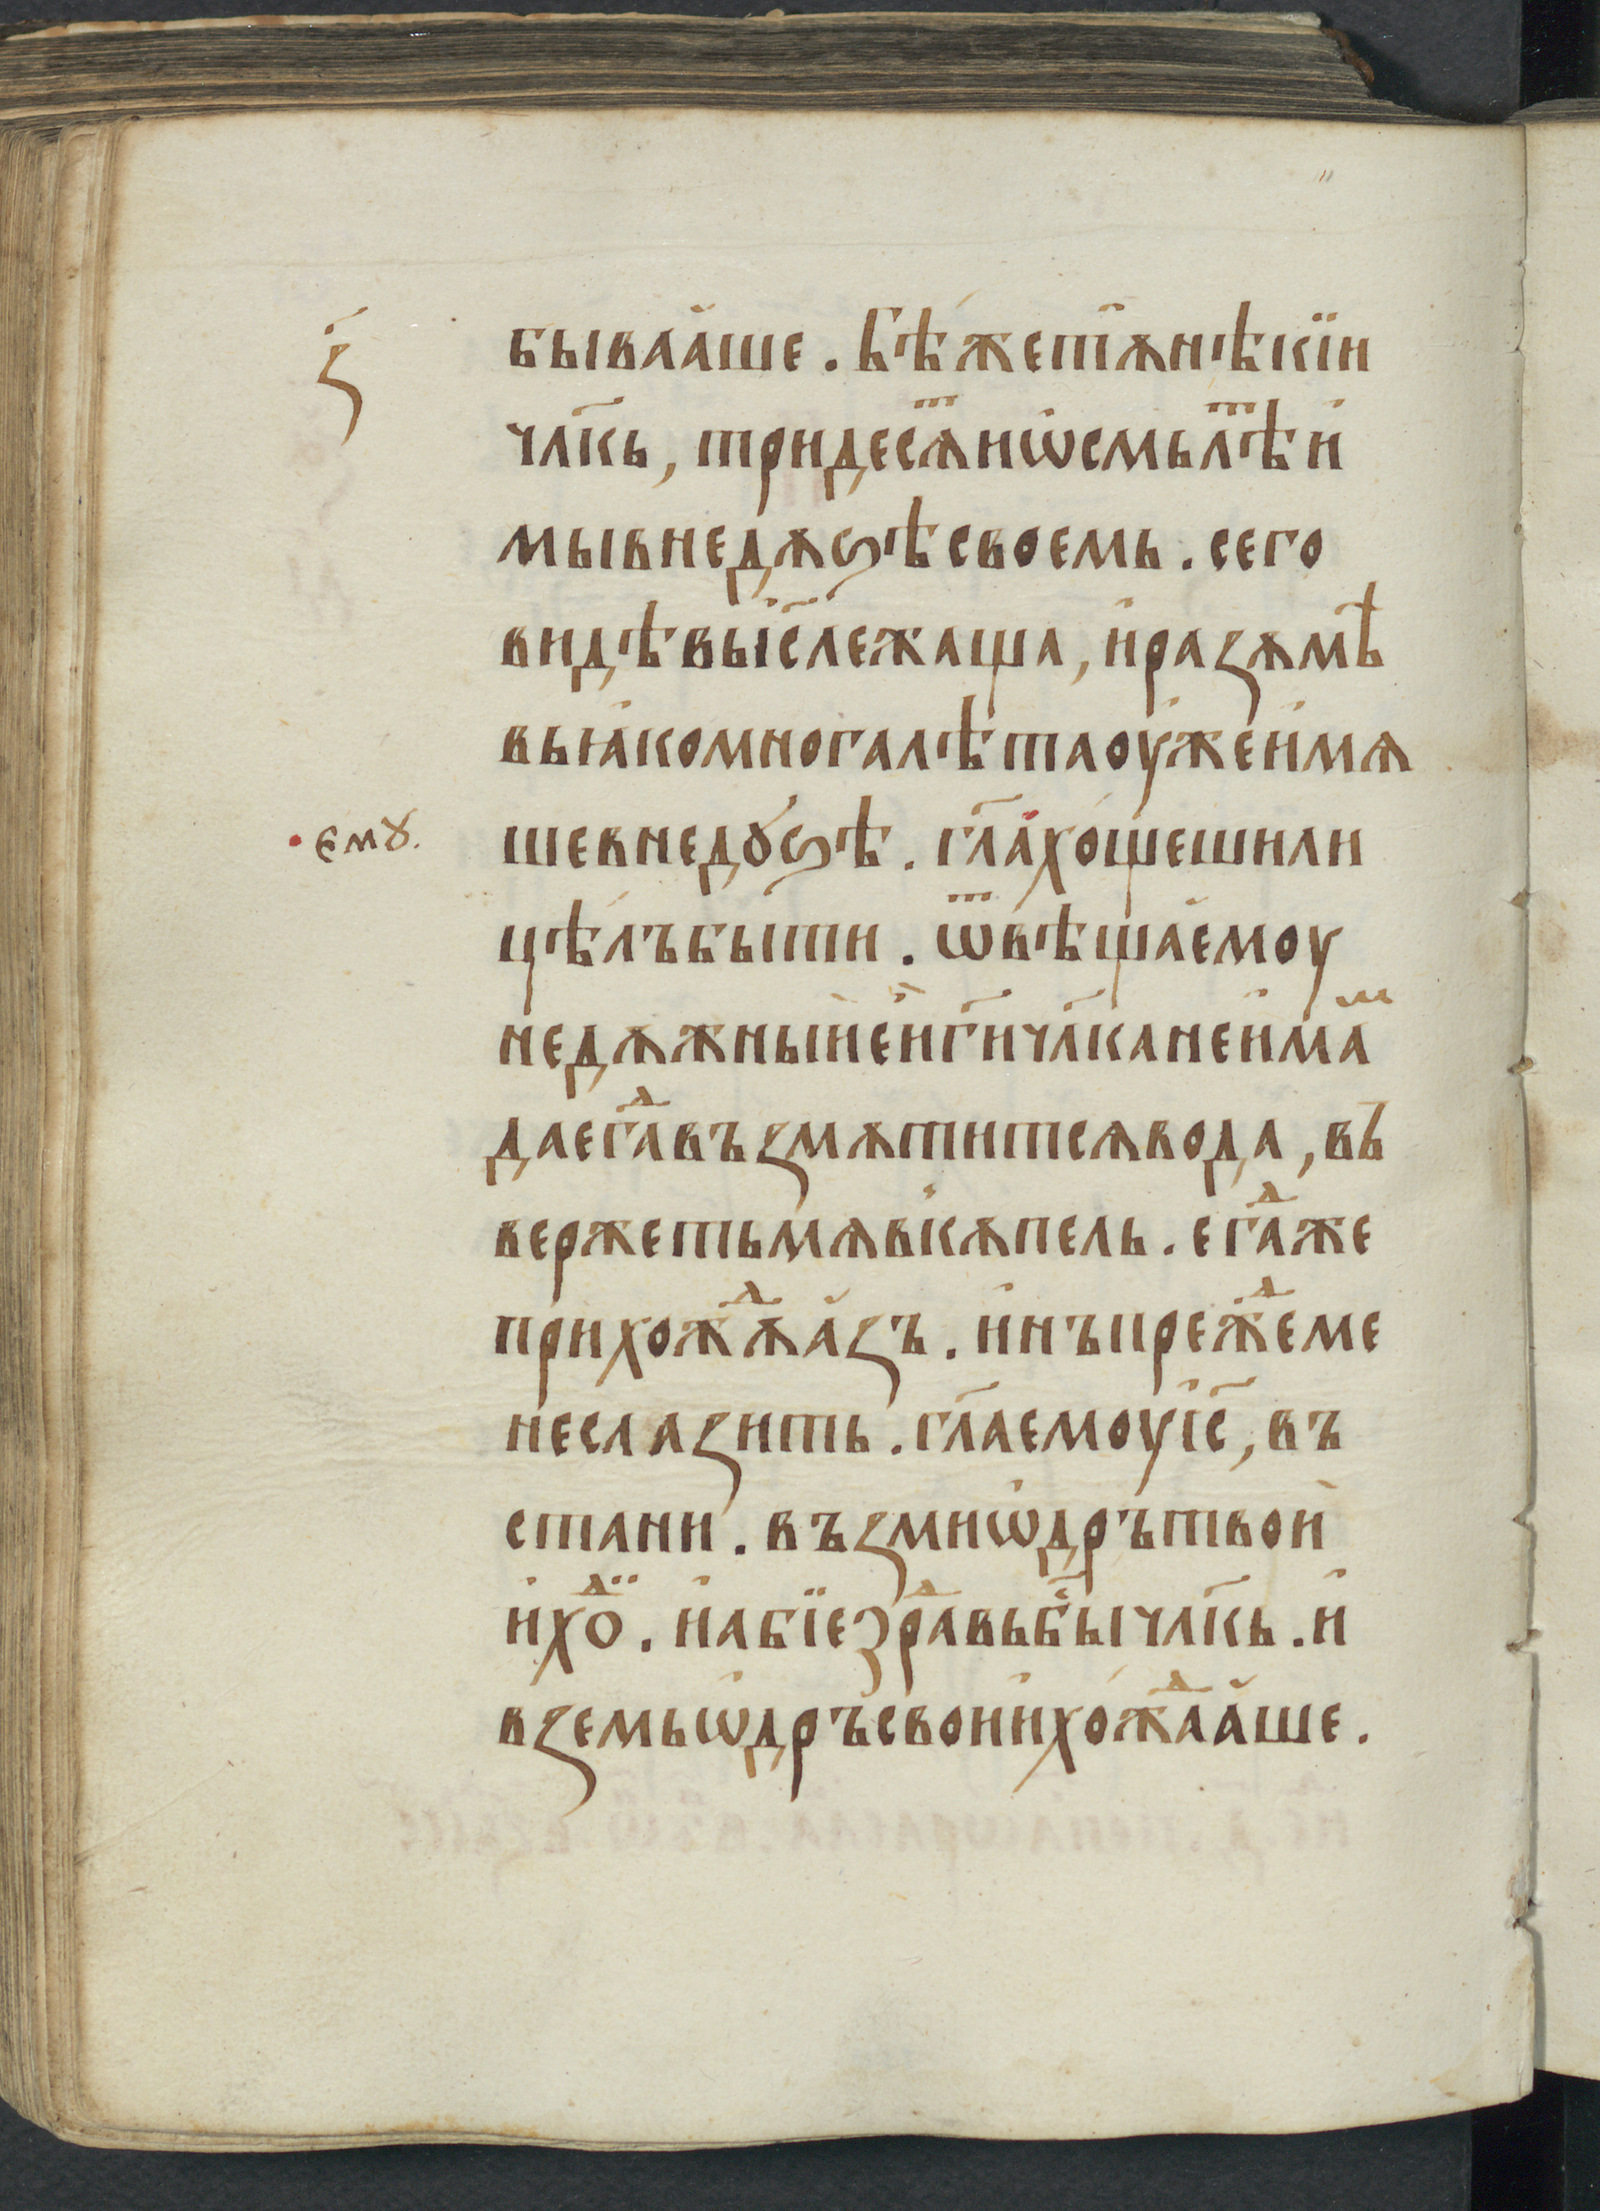 з҃
бываа̓ше . бѣ́ жетꙋ̀нѣкїи
чл҃кь, тридесѧⷮ и̓ѡсмьлѣⷮ и̓
мывнедѫѕѣсвоемь . сего
видѣвьі҃слежаща, и̓раꙁѫмѣ
вьꙗ̓комногалѣтаоу̓жеи̓мѧ
• ємꙋ. шевнедꙋѕѣ . гл҃ахо́щешили
цѣ́лъбы́ти . ѿвѣща̓емоу
недѫжныи̓е̓и̓г҃ичл҃канеи̓маⷨ
даегⷣавъꙁмѫтитсѧвода, въ
вержетьмѧвкѫпель . егⷣаже
прихожⷣѫа̓ꙁъ . и̓нъпрежⷣеме
неслаꙁить . гл҃аемоуі҃с, въ
стани . въꙁмиѡ̓дрътвои̓
и̓хоⷣ . и̓абїездⷣравьбы́чл҃кь . и̓
вꙁемьѡ̓дръсвои̓и̓хожⷣаа̓ше .